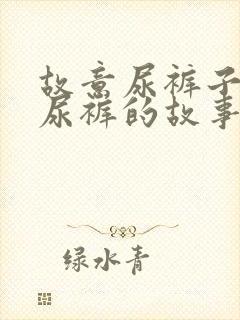 故意尿裤子
尿裤的故事
绿水青